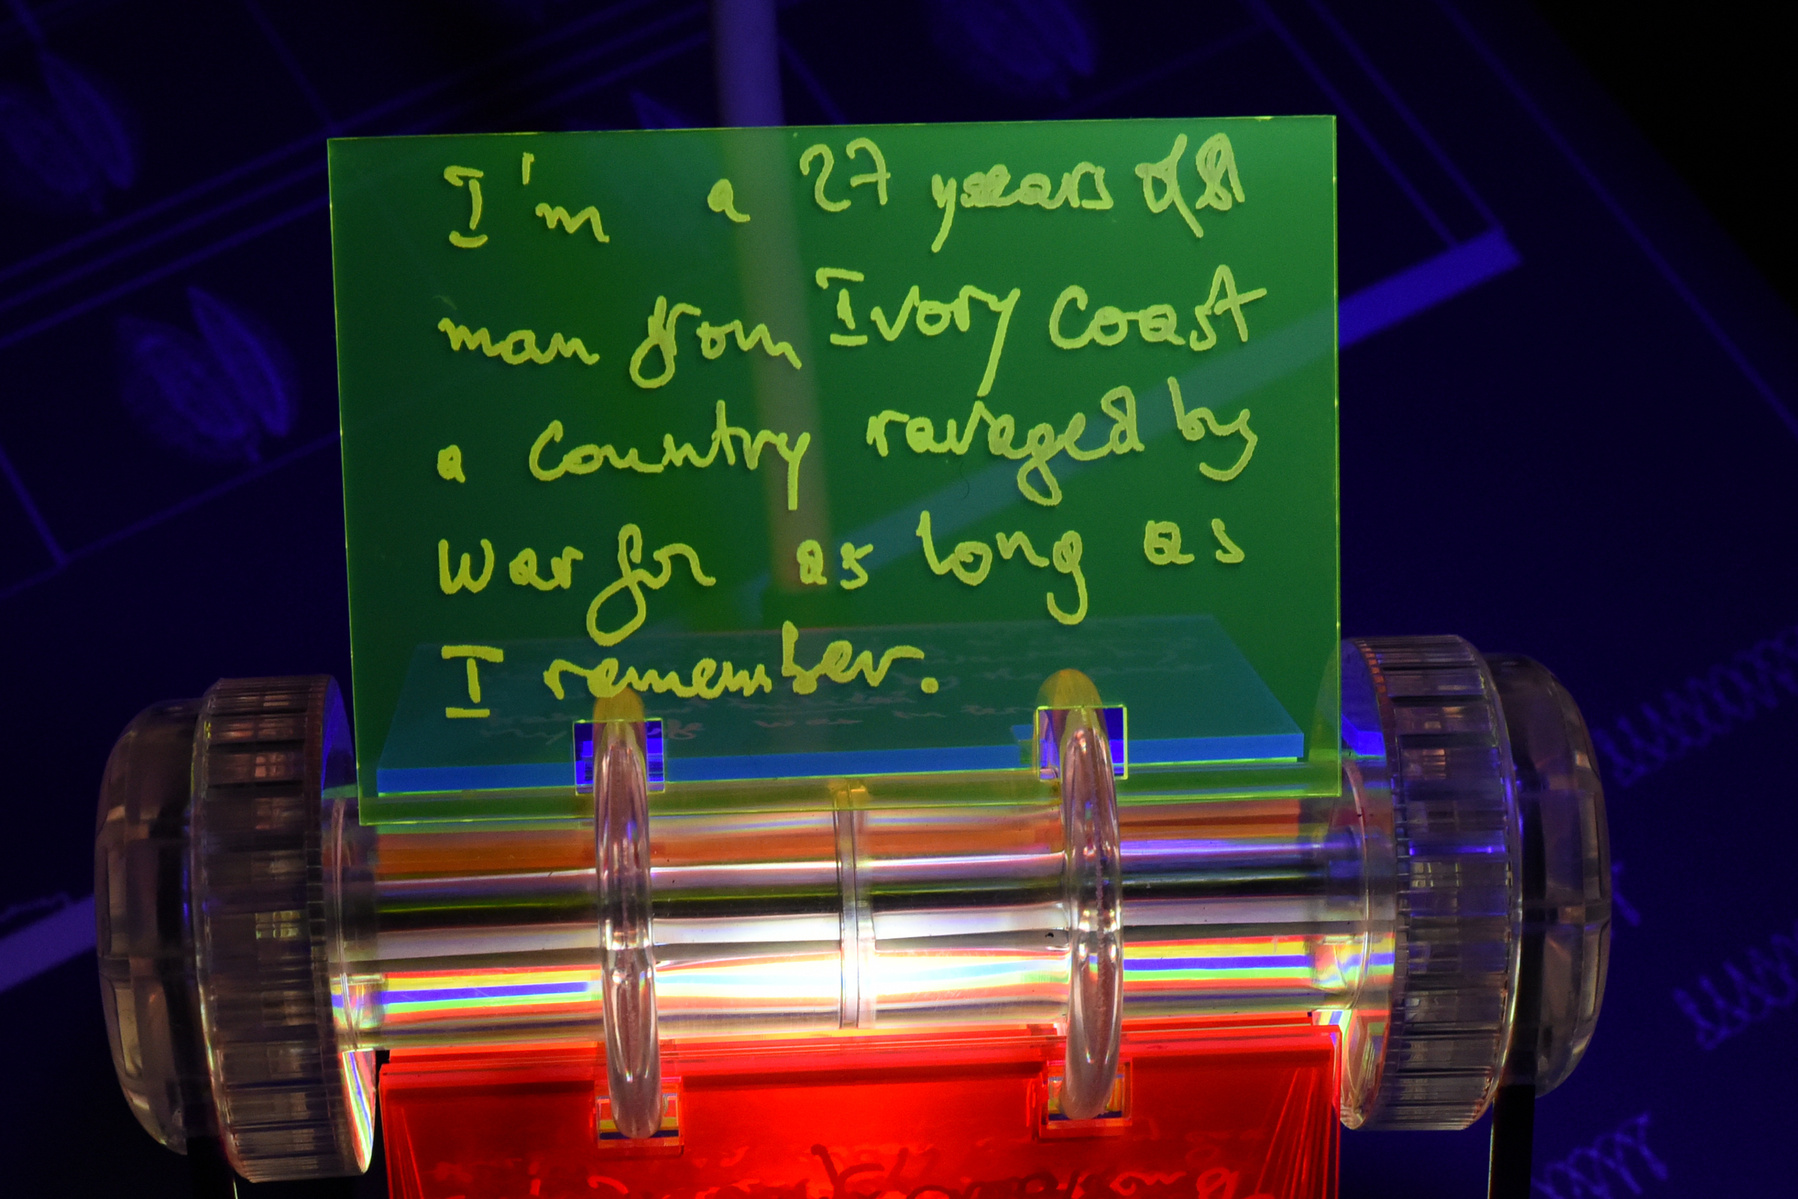 I'm a 27 years old
man from Ivory Coast
a country ravaged by
war for as long as
I remember.